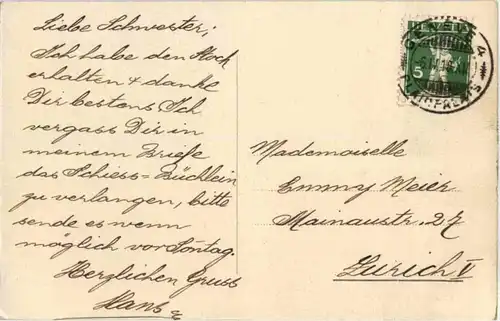 Liebe Schwester;
Ich habe den Stock
erhalten + danke
Dir bestens. Ich
vergass Dir in
meinem Briefe
das Schiess=Büchlein
zu verlangen, bitte
sende es wenn
möglich vor Sontag.
Herzlichen Gruss
Hans
GENÈVE 4
5
Mademoiselle
Emmy Meier
Mainaustr. 27
Zürich V